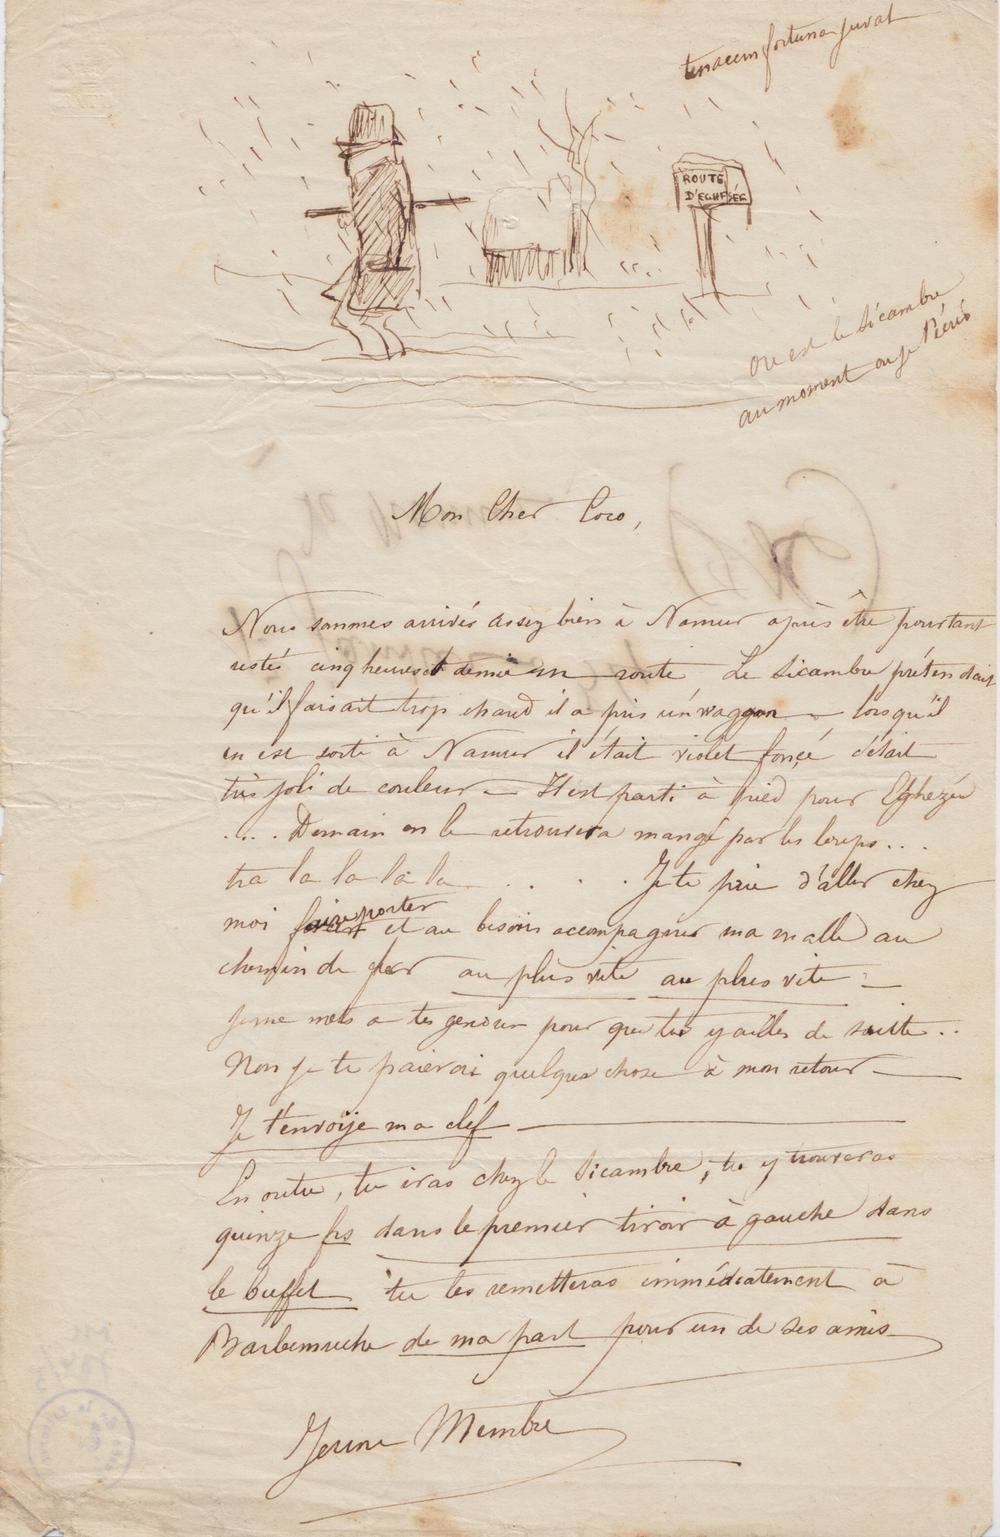 tenacem fortuna juvat
ROUTE
D'EGHESÉE
où est le Sicambre
au moment où je t'écris
Mon Cher Coco,
Nous sommes arrivés assez bien à Namur après être pourtant
restés cinq heures et demie en route Le Sicambre prétendait
qu'il faisait trop chaud il a pris un waggon — lorsqu'il
en est sorti à Namur il était violet foncé c'était
très joli de couleur — Il est parti à pied pour Eghezée
.... Demain on le retrouvera mangé par les loups...
tra la la la la . . . . Je te prie d'aller chez
moi faire porter et au besoin accompagner ma malle au
chemin de fer au plus vite au plus vite —
Je me mets a tes genoux pour que tu y ailles de suite..
Non je te paierai quelque chose à mon retour —
Je t'envoije ma clef —
En outre, tu iras chez le Sicambre, tu y trouveras
quinze frs dans le premier tiroir à gauche dans
le buffet tu les remetteras immédiatement à
Barbemuche de ma part pour un de ses amis
Jeune Membre